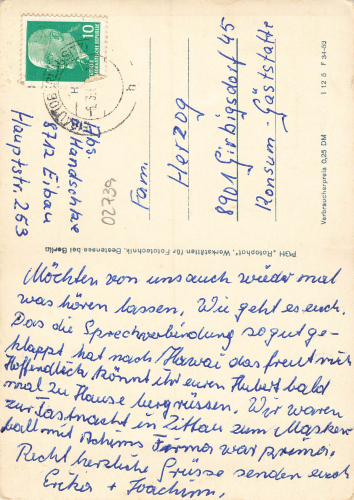 Abs.
Handschke
8712 Eibau
Hauptstr. 253
02739
10
h
Fam.
Herzog
8901 Girbigsdorf 45
Konsum-Gaststätte
Verbraucherpreis 0,25 DM
1 12 5 F 34-62
PGH „Rotophot", Werkstätten für Fototechnik, Bestensee bei Berlin
Möchten von uns auch wieder mal
was hören lassen. Wie geht es euch.
Das die Sprechverbindung so gut ge-
klappt hat nach Hawai das freut mich
Hoffendlich könnt ihr euren Hubert bald
mal zu Hause begrüssen. Wir waren
zur Fastnacht in Zittau zum Masken-
ball mit Achims Firma war prima.
Recht herzliche Grüsse senden euch
Erika + Joachim.